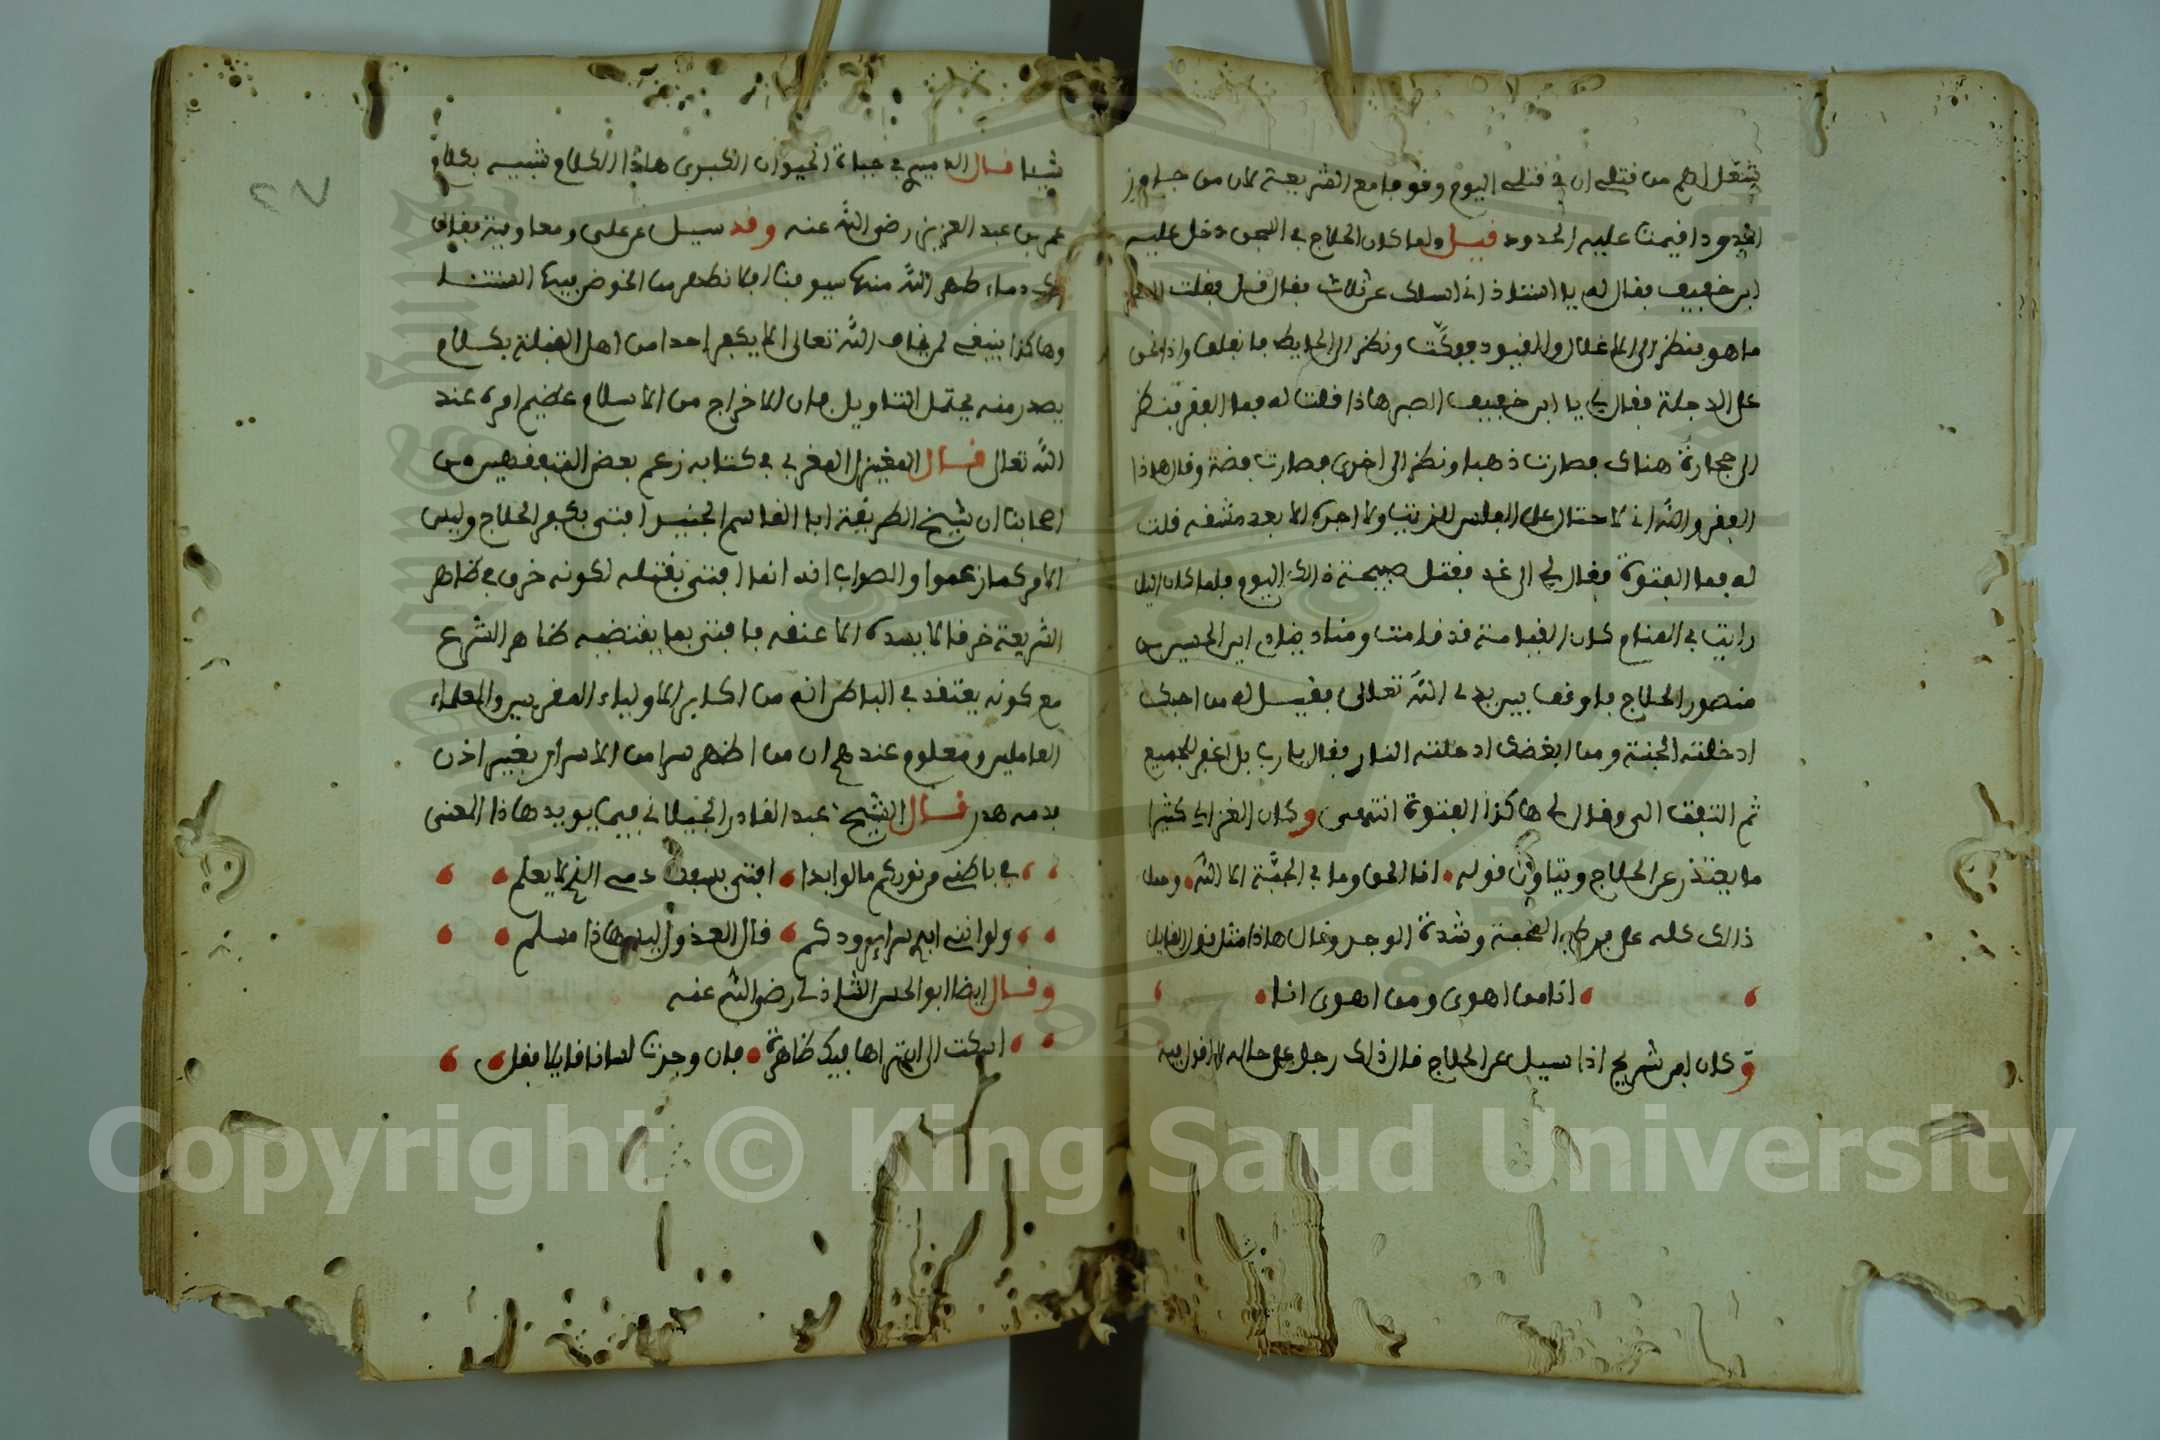 شغل اهم من قتلي ان في قتلي اليوم وقوفا مع الشريعة لان من جاوز
الحدود اقيمت عليه الحدود قيل ولما كان الحلاج في السجن دخل عليه
ابن خفيف فقال له يا استاذ اني اسلك عن ثلاث فقال قل فقلت
ما هو فنظر الى الاغلال والقيود ففكت ونظر الى الحايط فانفلق واذا نحن
على الدجلة فقال لي يا ابن خفيف الصبر هاذا فقلت له فما الفقر فنظر
الى حجارة هناك فصارت ذهبا ونظر الى اخرى فصارت فضة وقال هاذا
الفقر والله اني لاحتال على الفلس للزيت ولا اجده الا بعد مشقة قلت
له فما الفتوة فقال لي الى غد فقتل صبيحة ذالك اليوم فلما كان اليل
رايت في المنام كان القيامة قد قامت ومناد يناد اين الحسين بن
منصور الحلاج فاوقف بين يدي الله تعالى فقيل له من احبك
ادخلته الجنة ومن ابغضك ادخلته النار فقال يا رب بل اغفر للجميع
ثم التفت الي وقال لي هاكذا الفتوة انتهى وكان الغزالي كثيرا
ما يعتذر عن الحلاج ويتاول قوله انا الحق وما في الجبة الا الله وحمل
ذالك كله على فرط المحبة وشدة الوجد وقال هاذا مثل قول القايل
انا من اهوى ومن اهوى انا
وكان ابن شريح اذا سيل عن الحلاج قال ذالك رجل على حاله لا اقول فيه
٢٧
شيئا قال الدميري في حياة الحيوان الكبرى هاذا الكلام شبيه بكلام
عمر بن عبد العزيز رضي الله عنه وقد سيل عن علي ومعاوية فقال
دماء طهر الله منها سيوفنا افلا نطهر من الخوض فيها السنتنا
وهاكذا ينبغي لمن يخاف الله تعالى الا يكفر احدا من اهل القبلة بكلام
يصدر منه يحتمل التاويل فان الاخراج من الاسلام عظيم امره عند
الله تعالى قال المغيزل المغربي في كتابه زعم بعض الفقهاء من
اصحابنا ان شيخ الطريقة ابا القاسم الجنيد افتى بكفر الحلاج وليس
الامر كما زعموا والصواب انه انما افتى بقتله لكونه خرق في ظاهر
الشريعة خرقا لا يسده الا عنقه فافتى بما يقتضيه ظاهر الشرع
مع كونه يعتقد في الباطن انه من اكابر الاولياء المقربين والعلماء
العاملين ومعلوم عندهم ان من اظهر سرا من الاسرار بغير اذن
فدمه هدر قال الشيخ عبد القادر الجيلاني فيما يويد هاذا المعنى
في باطني من نوركم ما لو ابدا افتى بسفك دمي الذي لا يعلم
ولو انني ابدي سراير ودكم قال العذول ليس هاذا مسلم
وقال ايضا ابو الحسن الشاذلي رضي الله عنه
فان وجدت لسانا قايلا فقل